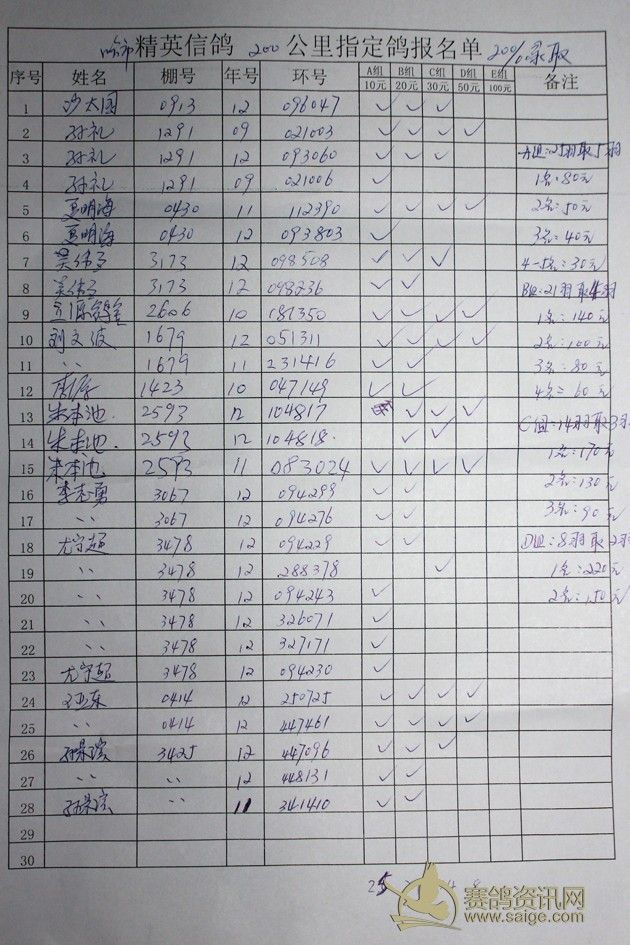 精英信鸽 200 公里指定鸽报名单 20% 录取
序号 姓名 棚号 年号 环号 A组 10元 B组 20元 C组 30元 D组 50元 E组 100元 备注
1 沙太国 0913 12 096047 ✓ ✓ ✓
2 孙礼 1291 09 021003 ✓ ✓ ✓ ✓
3 孙礼 1291 12 093060 ✓ ✓ ✓ A组:25羽取5羽
4 孙礼 1291 09 021006 ✓ 1名:80元
5 夏明海 0430 11 112390 ✓ ✓ ✓ ✓ 2名:50元
6 夏明海 0430 12 093803 ✓ 3名:40元
7 3173 12 098508 ✓ ✓ ✓ 4-5名:30元
8 3173 12 098236 ✓ ✓ B组:21羽取4羽
9 2606 10 081350 ✓ ✓ ✓ ✓ 1名:140元
10 刘文波 1679 12 051311 ✓ ✓ ✓ ✓ 2名:100元
11 〃 1679 11 231416 ✓ ✓ 3名:80元
12 1423 10 047149 ✓ ✓ 4名:60
13 朱本池 2593 12 104817 ✓ ✓ ✓ C组:14羽取3羽
14 朱本池 2593 12 104818 ✓ ✓ 1名:170元
15 朱本池 2593 11 083024 ✓ ✓ ✓ ✓ 2名:130元
16 李志勇 3067 12 094299 ✓ ✓
17 〃 3067 12 094276 ✓ ✓ 3名:90元
18 尤守超 3478 12 094229 ✓ ✓ D组:8羽取2羽
19 〃 3478 12 288378 ✓ 1名:220元
20 〃 3478 12 094243 ✓ 2名:150元
21 〃 3478 12 326071 ✓
22 〃 3478 12 327171 ✓
23 尤守超 3478 12 094230 ✓
24 0414 12 250725 ✓ ✓ ✓ ✓
25 〃 0414 12 447461 ✓ ✓ ✓ ✓
26 3425 12 447096 ✓ ✓ ✓
27 〃 〃 12 448131 ✓ ✓
28 〃 11 341410 ✓ ✓
29
30
25
赛鸽资讯网
www.saige.com